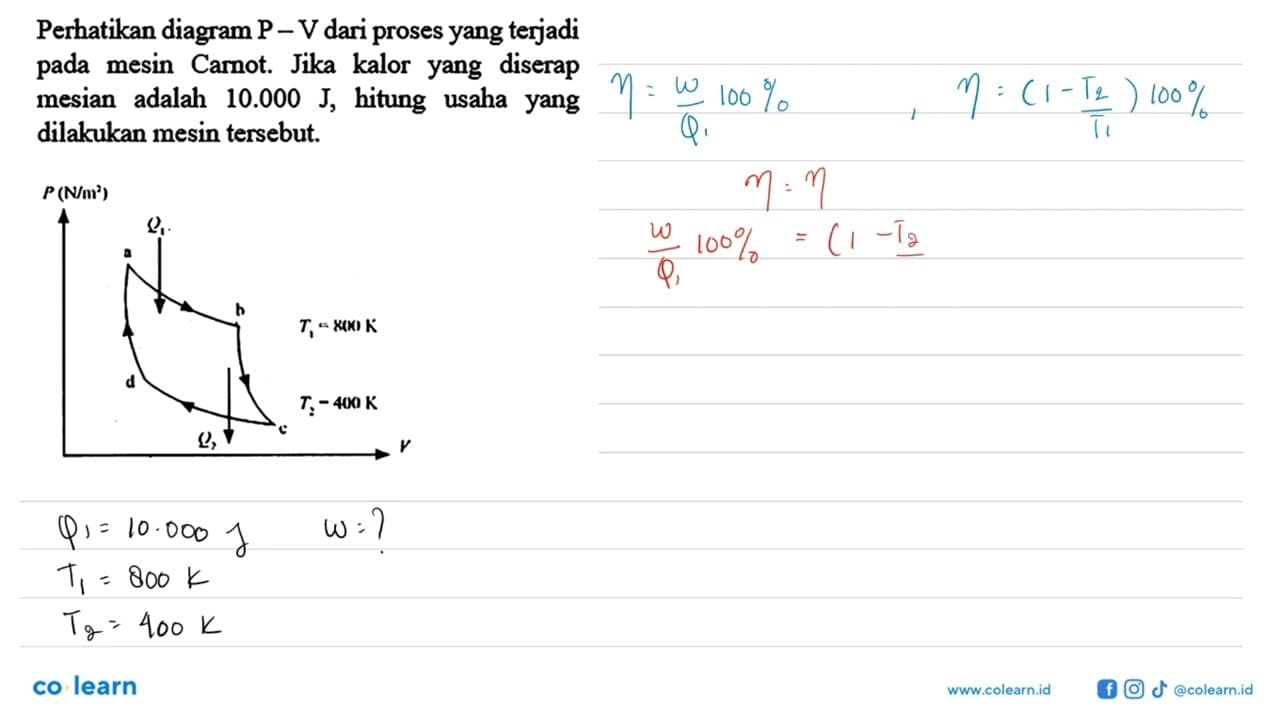 Perhatikan diagram P – V dari proses yang terjadi
pada mesin Carnot. Jika kalor yang diserap
mesian adalah 10.000 J, hitung usaha yang
dilakukan mesin tersebut.
P (N/m²)
Q₁.
a
b
T₁ = 800 K
d
T₂ = 400 K
c
Q₂
V
Q₁ = 10.000 J W = ?
T₁ = 800 K
T₂ = 400 K
η = W/Q₁ 100% , η = (1 - T₂/T₁) 100%
η = η
W/Q₁ 100% = (1 - T₂
co learn
www.colearn.id
@colearn.id